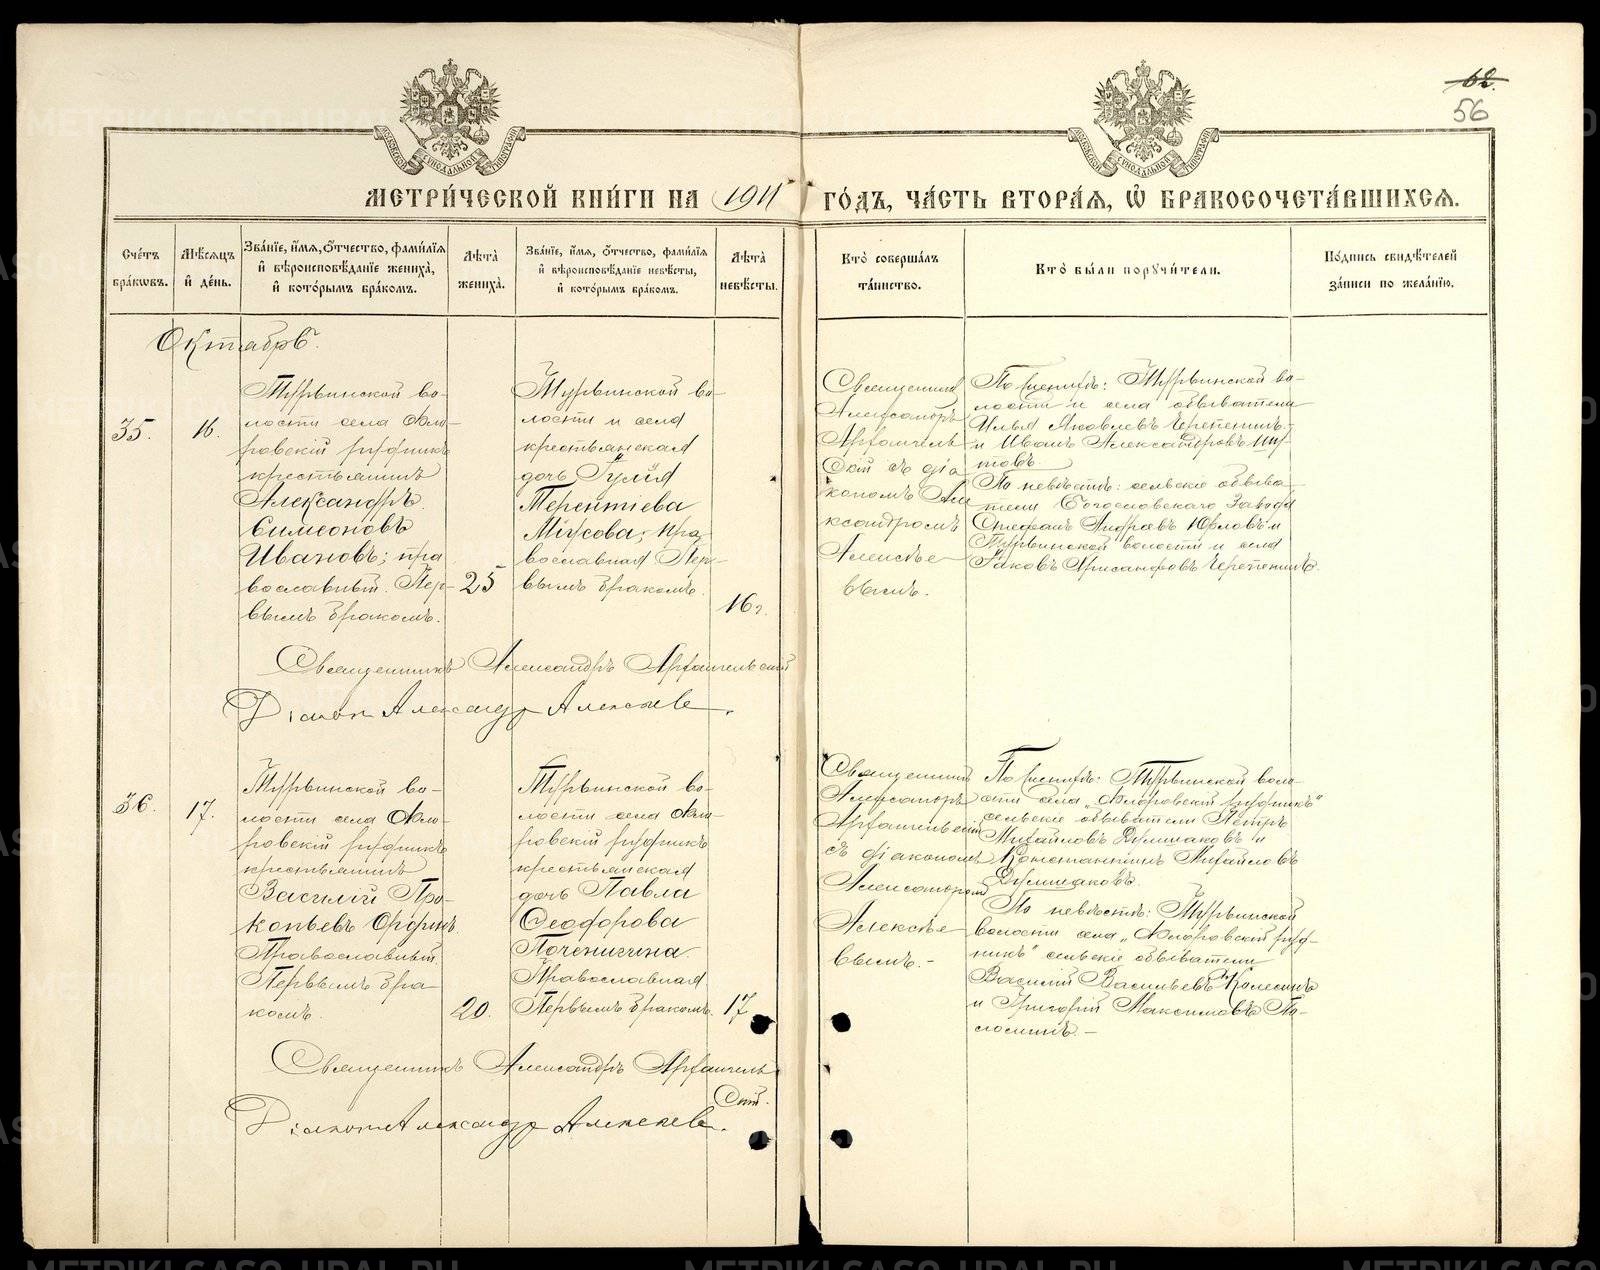 62.
56
МОСКОВСКОЙ СѴНОДАЛЬНОЙ ТИПОГРАФІИ
МОСКОВСКОЙ СѴНОДАЛЬНОЙ ТИПОГРАФІИ
МЕТРИ́ЧЕСКОЙ КНИ́ГИ НА 1911 ГО́ДЪ, ЧА́СТЬ ВТОРА́Я, Ѡ҆ БРАКОСОЧЕТА́ВШИХСЯ.
Сче́тъ
бра́кѡвъ.
Мѣ́сяцъ
и҆ де́нь.
Зва́нїе, и҆́мя, ѻ҆́тчество, фами́лїя
и҆ вѣроисповѣ́данїе жениха̀,
и҆ кото́рымъ бра́комъ.
Лѣ́та̀
жениха̀.
Зва́нїе, и҆́мя, ѻ҆́тчество, фами́лїя
и҆ вѣроисповѣ́данїе невѣ́сты,
и҆ кото́рымъ бра́комъ.
Лѣ́та̀
невѣ́сты.
Кто̀ соверша́лъ
та́инство.
Кто̀ бы́ли порꙋчи́тели.
По́дпись свидѣ́телей
за́писи по жела́нїю.
Октябрь.
35.
16.
Турьинской во-
лости села Фло-
ровскій рудникъ
крестьянинъ
Александръ
Симеоновъ
Ивановъ; пра
вославный. Пер-
вымъ бракомъ.
25
Турьинской во-
лости и села
крестьянская
дочь Іулія
Терентіева
Мѣсова; пра-
вославная Пер-
вымъ бракомъ.
16 г.
Священникъ
Александръ
Архангель
скій съ діа
кономъ Але
ксандромъ
Алексѣе
вымъ.
По женихѣ: Турьинской во-
лости и села обыватели
Илья Яковлевъ Черепенинъ
и Иванъ Александровъ
По невѣстѣ: сельскіе обыва-
тели Богословскаго Завода
Стефанъ Андреевъ Юрловъ и
Турьинской волости и села
Іаковъ Хрисанфовъ Черепенинъ.
Священникъ Александръ Архангельскій
Діаконъ Александр Алексѣев.
36.
17.
Турьинской во-
лости села Фло-
ровскій рудникъ
крестьянинъ
Василій Про-
копьевъ
Православный.
Первымъ бра
комъ.
20.
Турьинской во-
лости села Фло-
ровскій рудникъ
крестьянская
дочь Павла
Ѳеодорова
Поченигина
Православная
Первымъ бракомъ.
17
Священникъ
Александръ
Архангельскій
съ діакономъ
Александромъ
Алексѣе
вымъ. -
По женихѣ: Турьинской воло-
сти села „Флоровскій рудникъ"
сельскіе обыватели Петръ
Михайловъ и
Константинъ Михайловъ
По невѣстѣ: Турьинской
волости села „Флоровскій руд-
никъ" сельскіе обыватели
Василій Васильевъ Колесинъ
и Григорій Максимовъ По-
ломинъ. -
Священникъ Александръ Архангель
скій.
Діаконъ Александр Алексѣев.